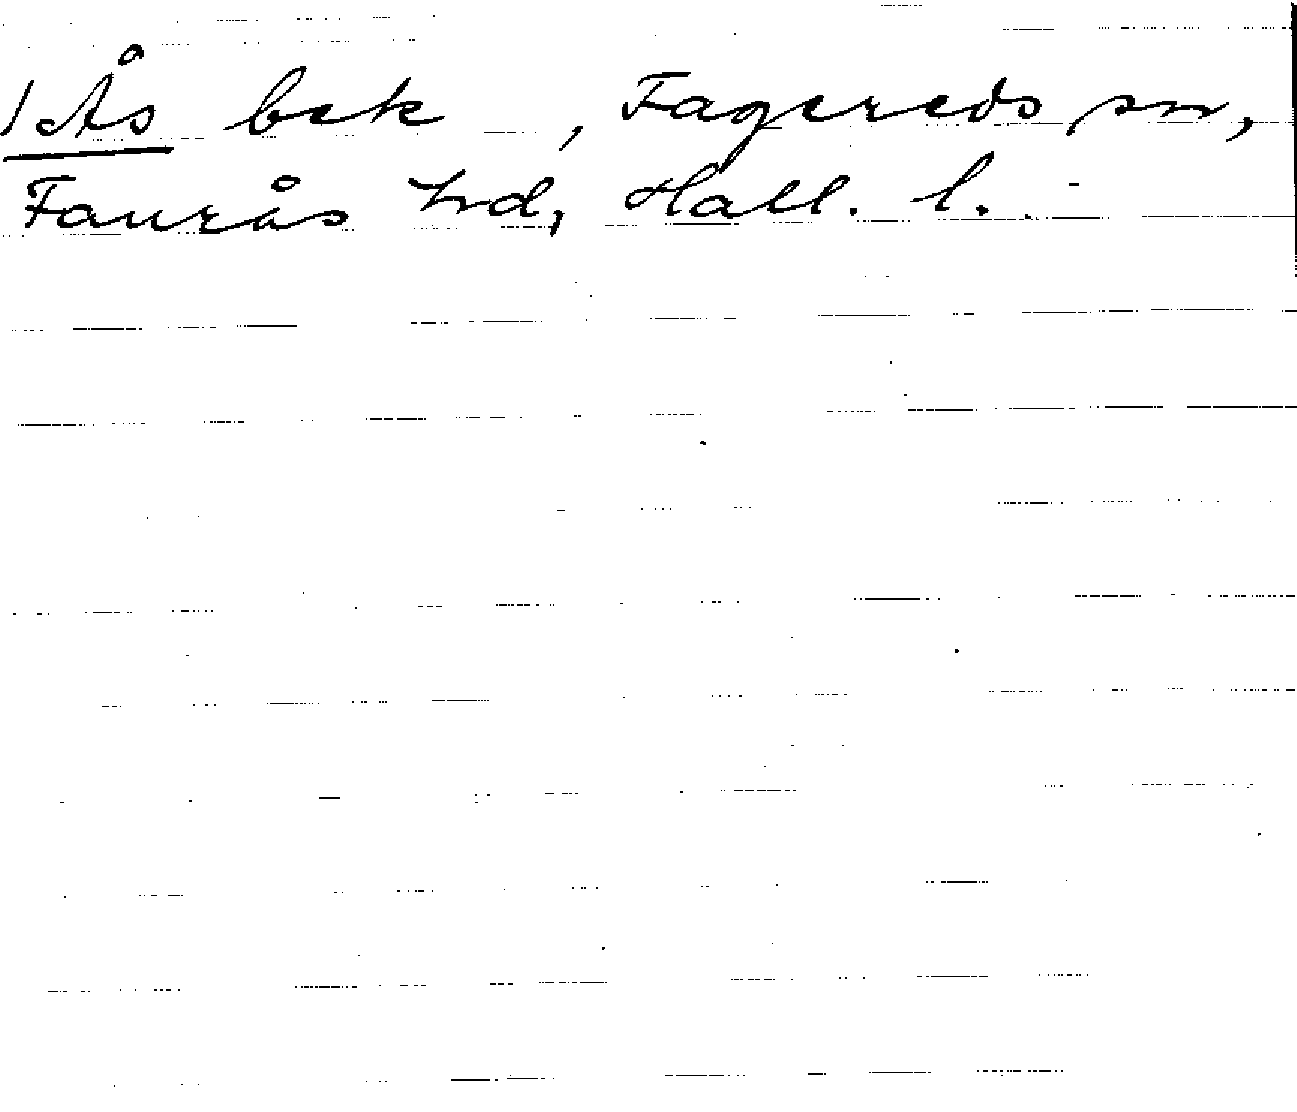 /Ås bek , Fagereds sn,
Faurås hd, Hall. l.